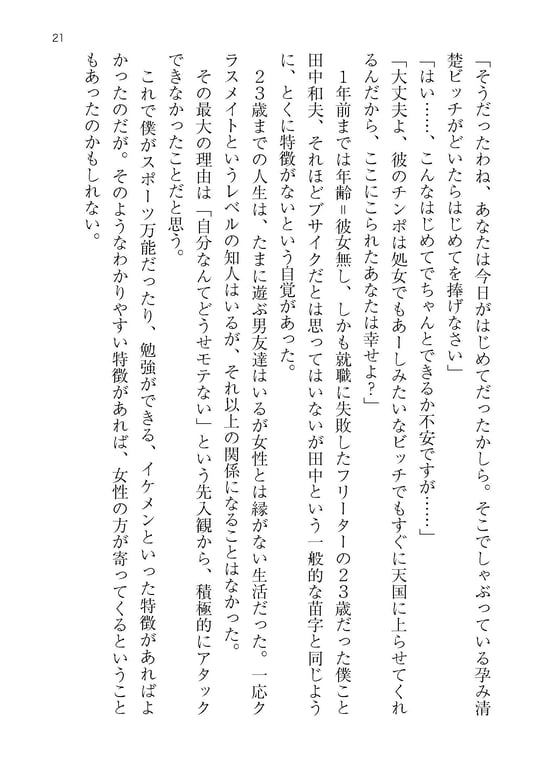 21
「そうだったわね、あなたは今日がはじめてだったかしら。そこでしゃぶっている孕み清
楚ビッチがどいたらはじめてを捧げなさい」
「はい……、こんなはじめてでちゃんとできるか不安ですが……」
「大丈夫よ、彼のチンポは処女でもあーしみたいなビッチでもすぐに天国に上らせてくれ
るんだから、ここにこられたあなたは幸せよ？」
１年前までは年齢＝彼女無し、しかも就職に失敗したフリーターの２３歳だった僕こと
田中和夫、それほどブサイクだとは思ってはいないが田中という一般的な苗字と同じよう
に、とくに特徴がないという自覚があった。
２３歳までの人生は、たまに遊ぶ男友達はいるが女性とは縁がない生活だった。一応ク
ラスメイトというレベルの知人はいるが、それ以上の関係になることはなかった。
その最大の理由は「自分なんてどうせモテない」という先入観から、積極的にアタック
できなかったことだと思う。
これで僕がスポーツ万能だったり、勉強ができる、イケメンといった特徴があればよ
かったのだが。そのようなわかりやすい特徴があれば、女性の方が寄ってくるということ
もあったのかもしれない。